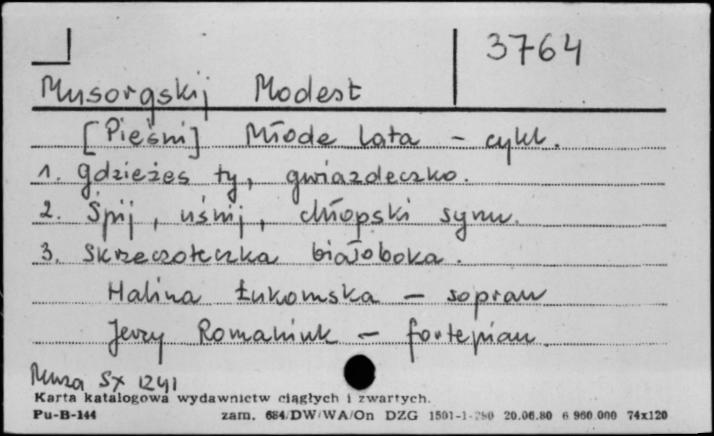 3764
Musorgskij Modest
[Pieśni] Młode lata - cykl.
1. Gdzieżeś ty, gwiazdeczko.
2. Śpij, uśnij, chłopski synu.
3. Skrzeczoteczka białoboka.
Halina Łukomska - sopran
Jerzy Romaniuk - fortepian
Muza SX 1241
Karta katalogowa wydawnictw ciągłych i zwartych.
Pu-B-144 zam. 684/DW/WA/On DZG 1501-1-280 20.06.80 6 960.000 74x120